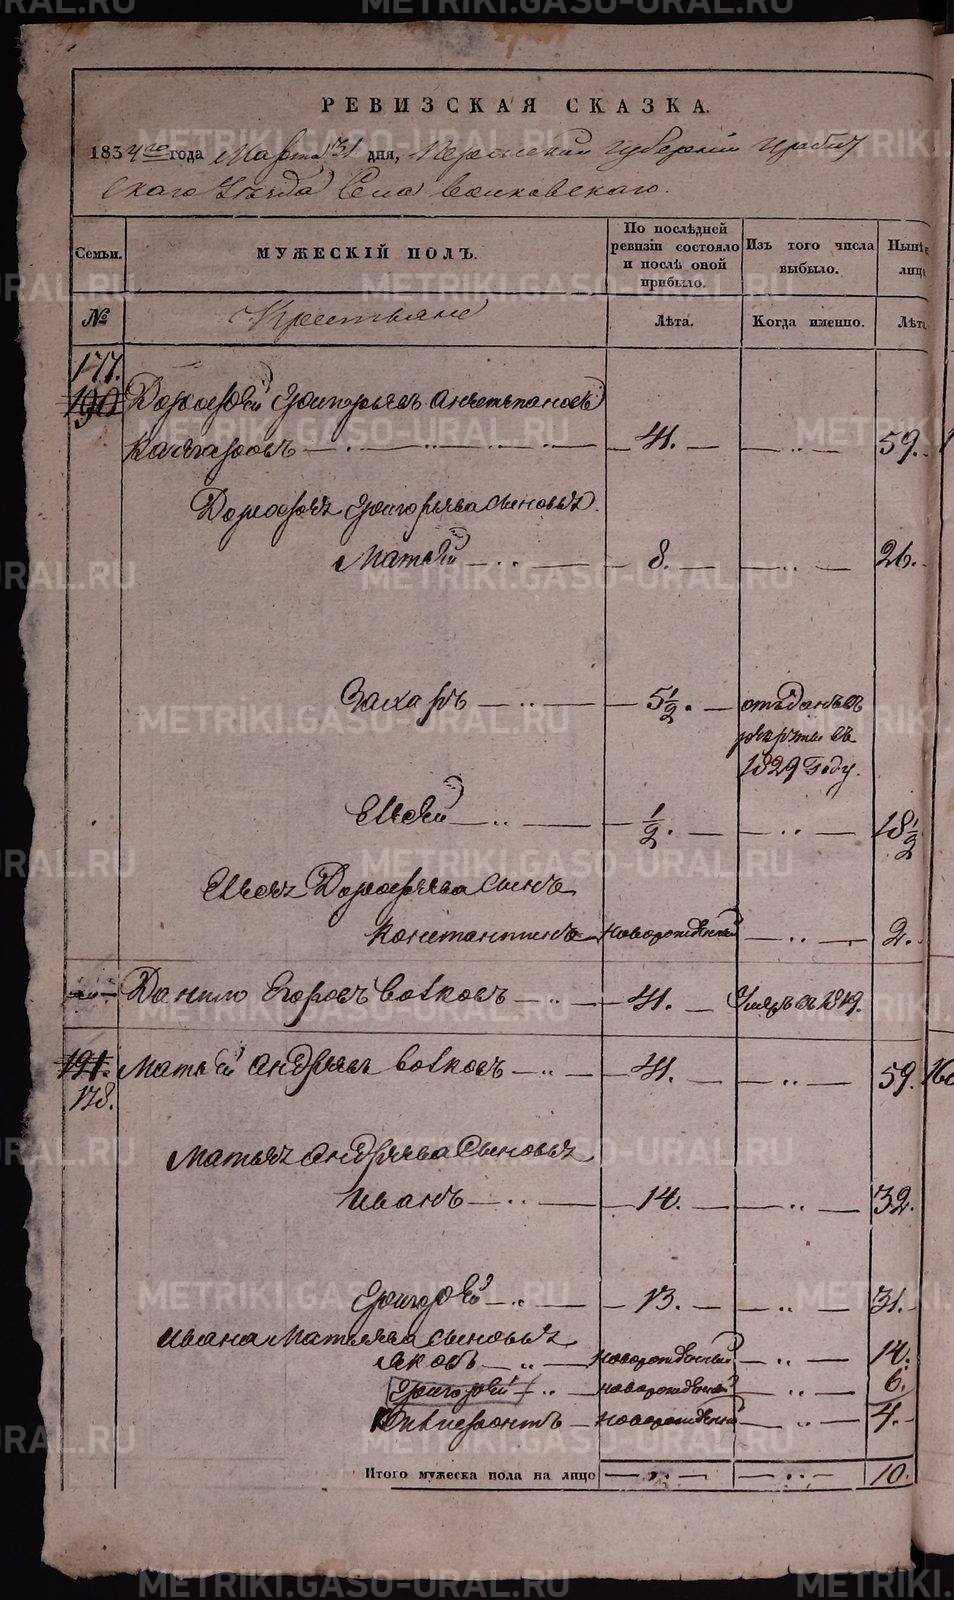 РЕВИЗСКАЯ СКАЗКА.
1834 го года Марта 31 дня, Пермской губернии Ирбит
скаго Уезда Села Волковскаго.
Семьи.
МУЖЕСКІЙ ПОЛЪ.
По послѣдней ревизіи состояло и послѣ оной прибыло.
Изъ того числа выбыло.
Нынѣ лиц
№
Крестьяне
Лѣта.
Когда именно.
Лѣта
177.
190 Дорофей Григорьевъ
41. 59.
Дорофея Григорьева сыновья
Матвей 8. 26.
Захаръ 5 1/2. отъданъ в
рекруты въ
1829 году.
Елисей 1/2. 18 1/2
Дорофеева сынъ
Константинъ новорожденный 2.
Данило Егоровъ Волковъ 41. Умеръ в 1819.
191. Матвей Андреевъ Волковъ 41. 59.
178.
Матвея Андреева Сыновья
Иванъ 14. 32.
Григорей 13. 31.
Ивана Матвеева сыновья
Яковъ новорожденный 14.
Григорей новорожденный 6.
новорожденный 4.
Итого мужеска пола на лицо 10.
METRIKI.GASO-URAL.RU